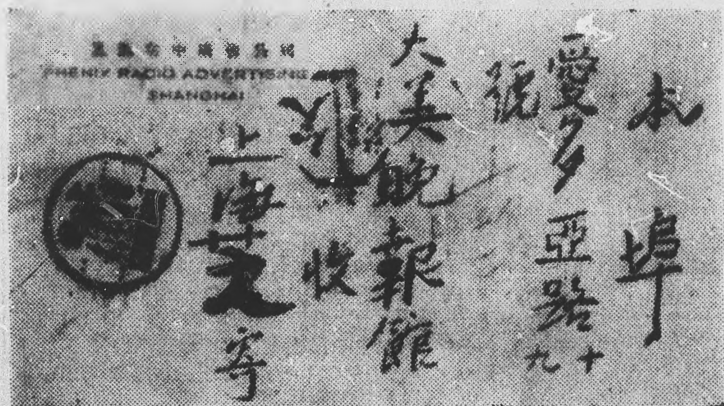 PHENIX RADIO ADVERTISING
SHANGHAI
本埠
愛多亞路十九
號
大美晚報館
收
上海寄